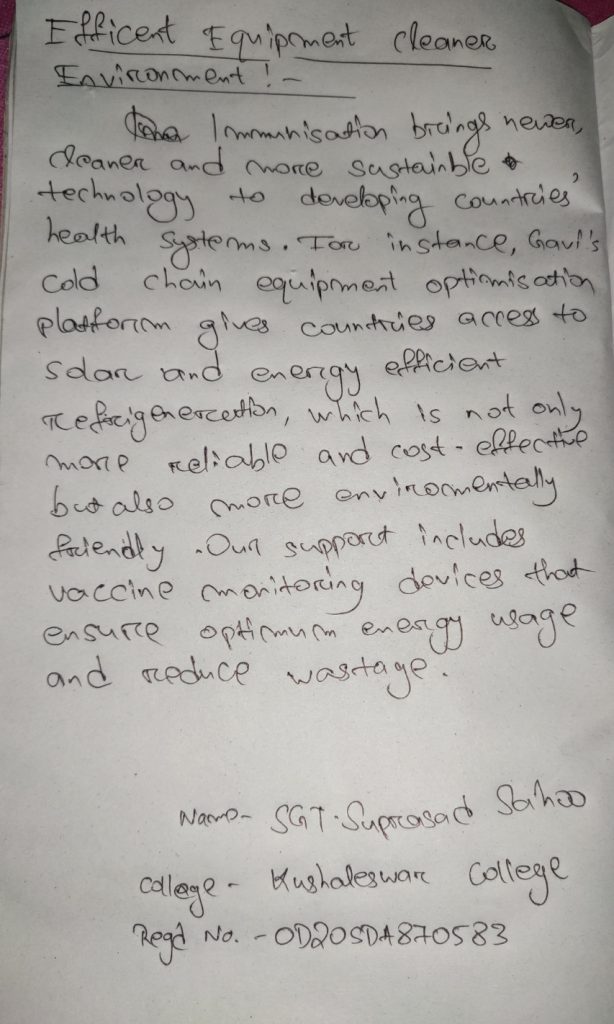 Efficent Equipment cleaner
Environment ! -
Immunisation brings newer,
cleaner and more sustainble
technology to developing countries'
health systems. For instance, Gavi's
cold chain equipment optimisation
platform gives countries access to
solar and energy efficient
refrigenercation, which is not only
more reliable and cost-effective
but also more envirnomentally
friendly. Our support includes
vaccine monitoring devices that
ensure optimum energy usage
and reduce wastage.
Name- SGT. Suprasad Sahoo
College - Kushaleswar College
Regd No. - OD20SDA870583